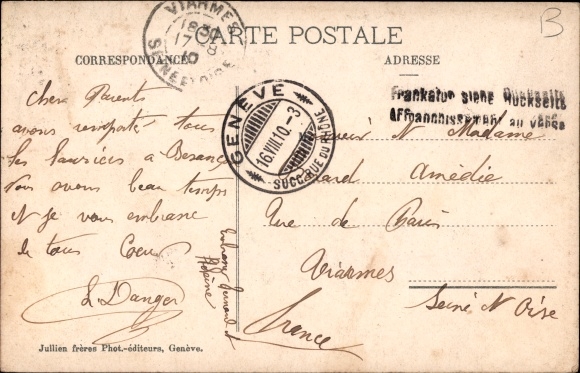 CARTE POSTALE
CORRESPONDANCE
ADRESSE
B
VIARMES
17
10
SEINE ET OISE
GENÈVE
16.VIII.10.-3
SUCC. RUE DU RHÔNE
Frankatur siehe Rückseite
Affranchissement au verso
Chers Parents
avons remporté tous
les lauriers à
Nous avons beau temps
Et je vous embrasse
de tous Coeur
L Danger
Monsieur et Madame
Amédie
Rue de Paris
Viarmes
Seine et Oise
France
Jullien frères Phot.-éditeurs, Genève.